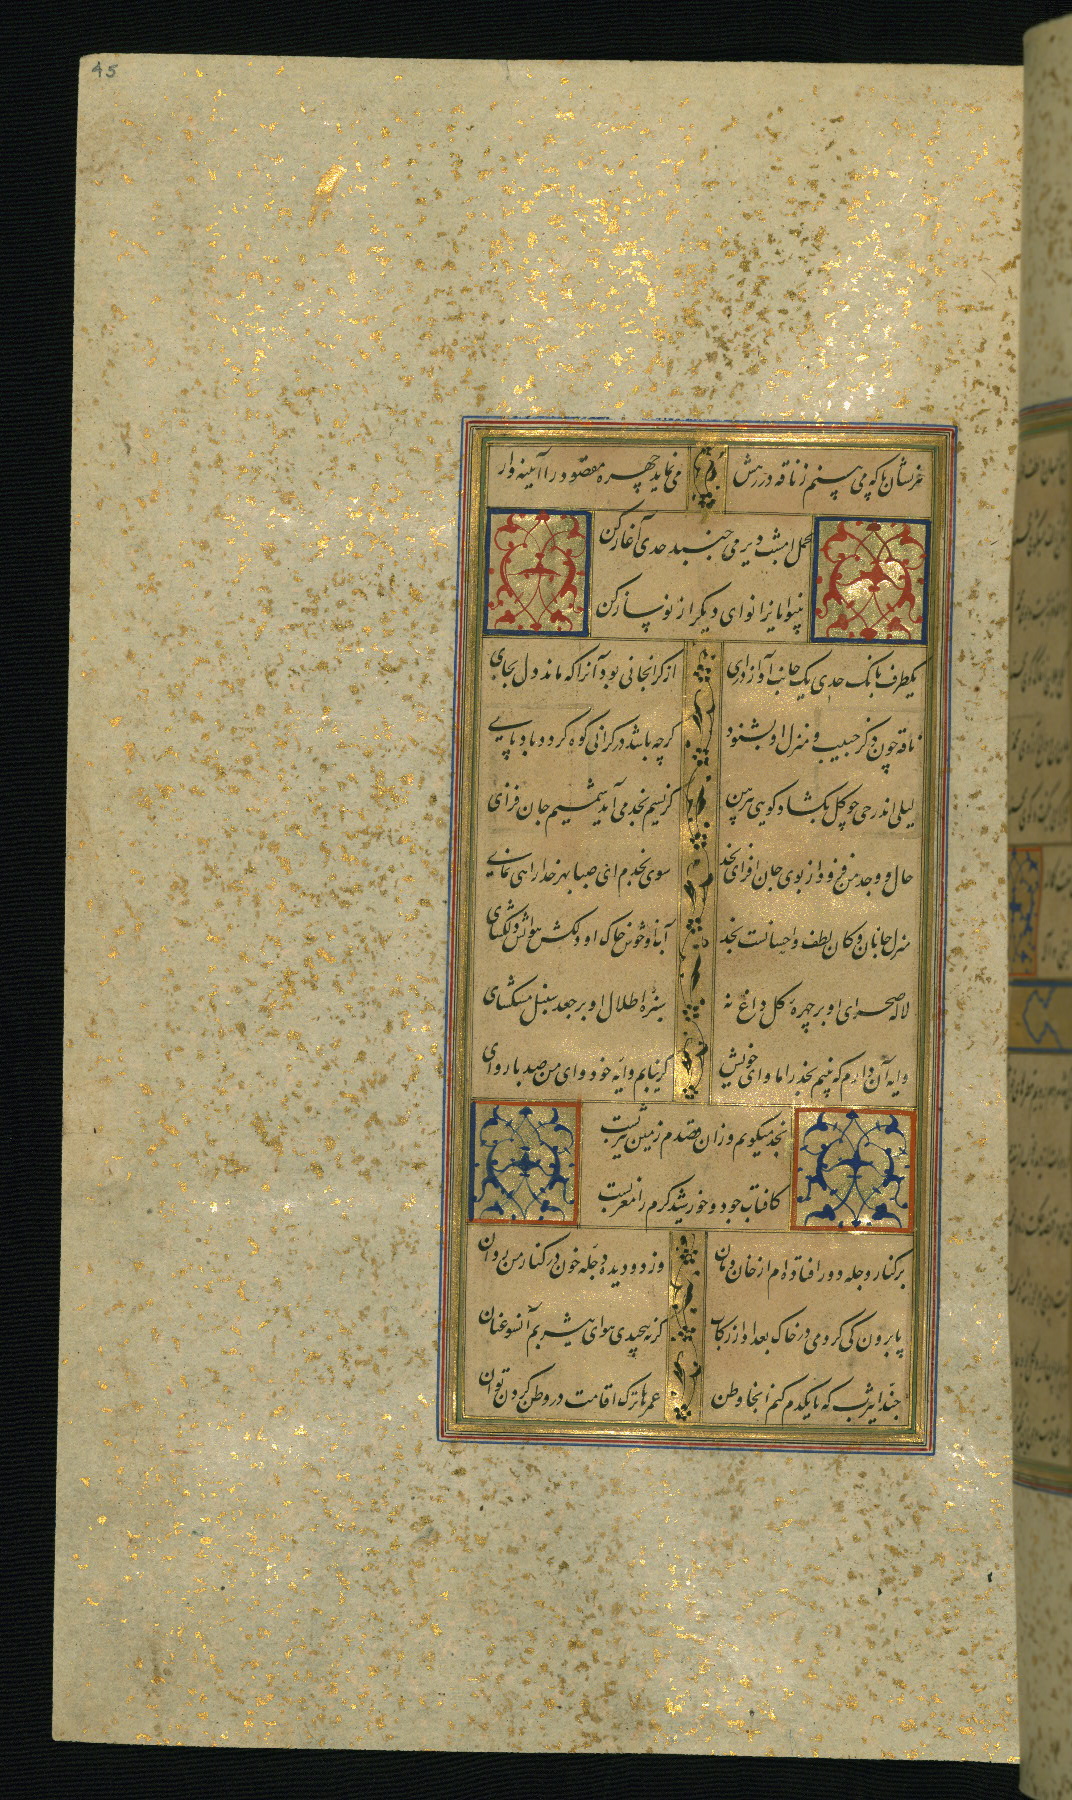 45
هر نشان پا که می بینم ز ناقه در رهش
می نماید چهره مقصود را آیینه وار
محمل امشب دیر می جنبد حدی آغاز کن
بینوایانرا نوای دیگر از نو ساز کن
یکطرف بانک حدی یک جانب آواز درای
از گرانجانی بود آنرا که ماند دل بجای
ناقه چون ذکر حبیب و منزل او بشنود
گرچه باشد در گرانی کوه گردد باد پای
لیلی اندر حی چو گل بگشاد گویی پیرهن
کز نسیم نجد می آید شمیم جان فزای
حال و وجد من فزود از بوی جان افزای نجد
سوی نجدم ای صبا بهر خدا راهی نمای
منزل جانان و کان لطف و احسانست نجد
آب او خوش خاک او دلکش هوایش دلگشای
لاله صحرای او بر چهره گل داغ نه
سبزه اطلال او بر جعد سنبل مشکسای
وایه آن دارم که بینم نجد را ماوای خویش
گر نیابم وایه خود وای من صد بار وای
نجد میگویم وزان مقصدم زمین یثربست
کافتاب جود و خورشید کرم را مغربست
بر کنار دجله دور افتاده ام از خان و مان
وز دو دیده دجله خون در کنار من روان
پا برون کی کردمی در خاک بغداد از رکاب
گر نه پیچیدی هوای یثربم آنسو عنان
حبذا یثرب که تا یکدم کنم آنجا وطن
عمرها ترک اقامت در وطن کردن توان